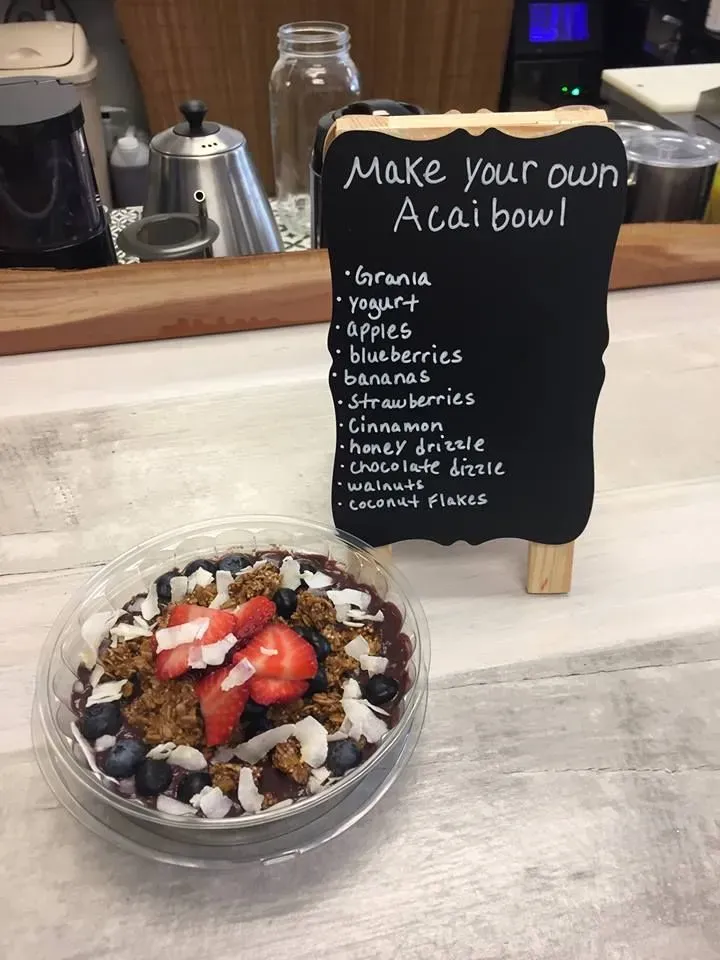 Make your own
Acai bowl
• Grania
• yogurt
• apples
• blueberries
• bananas
• Strawberries
• Cinnamon
• honey drizzle
• chocolate dizzle
• walnuts
• coconut Flakes